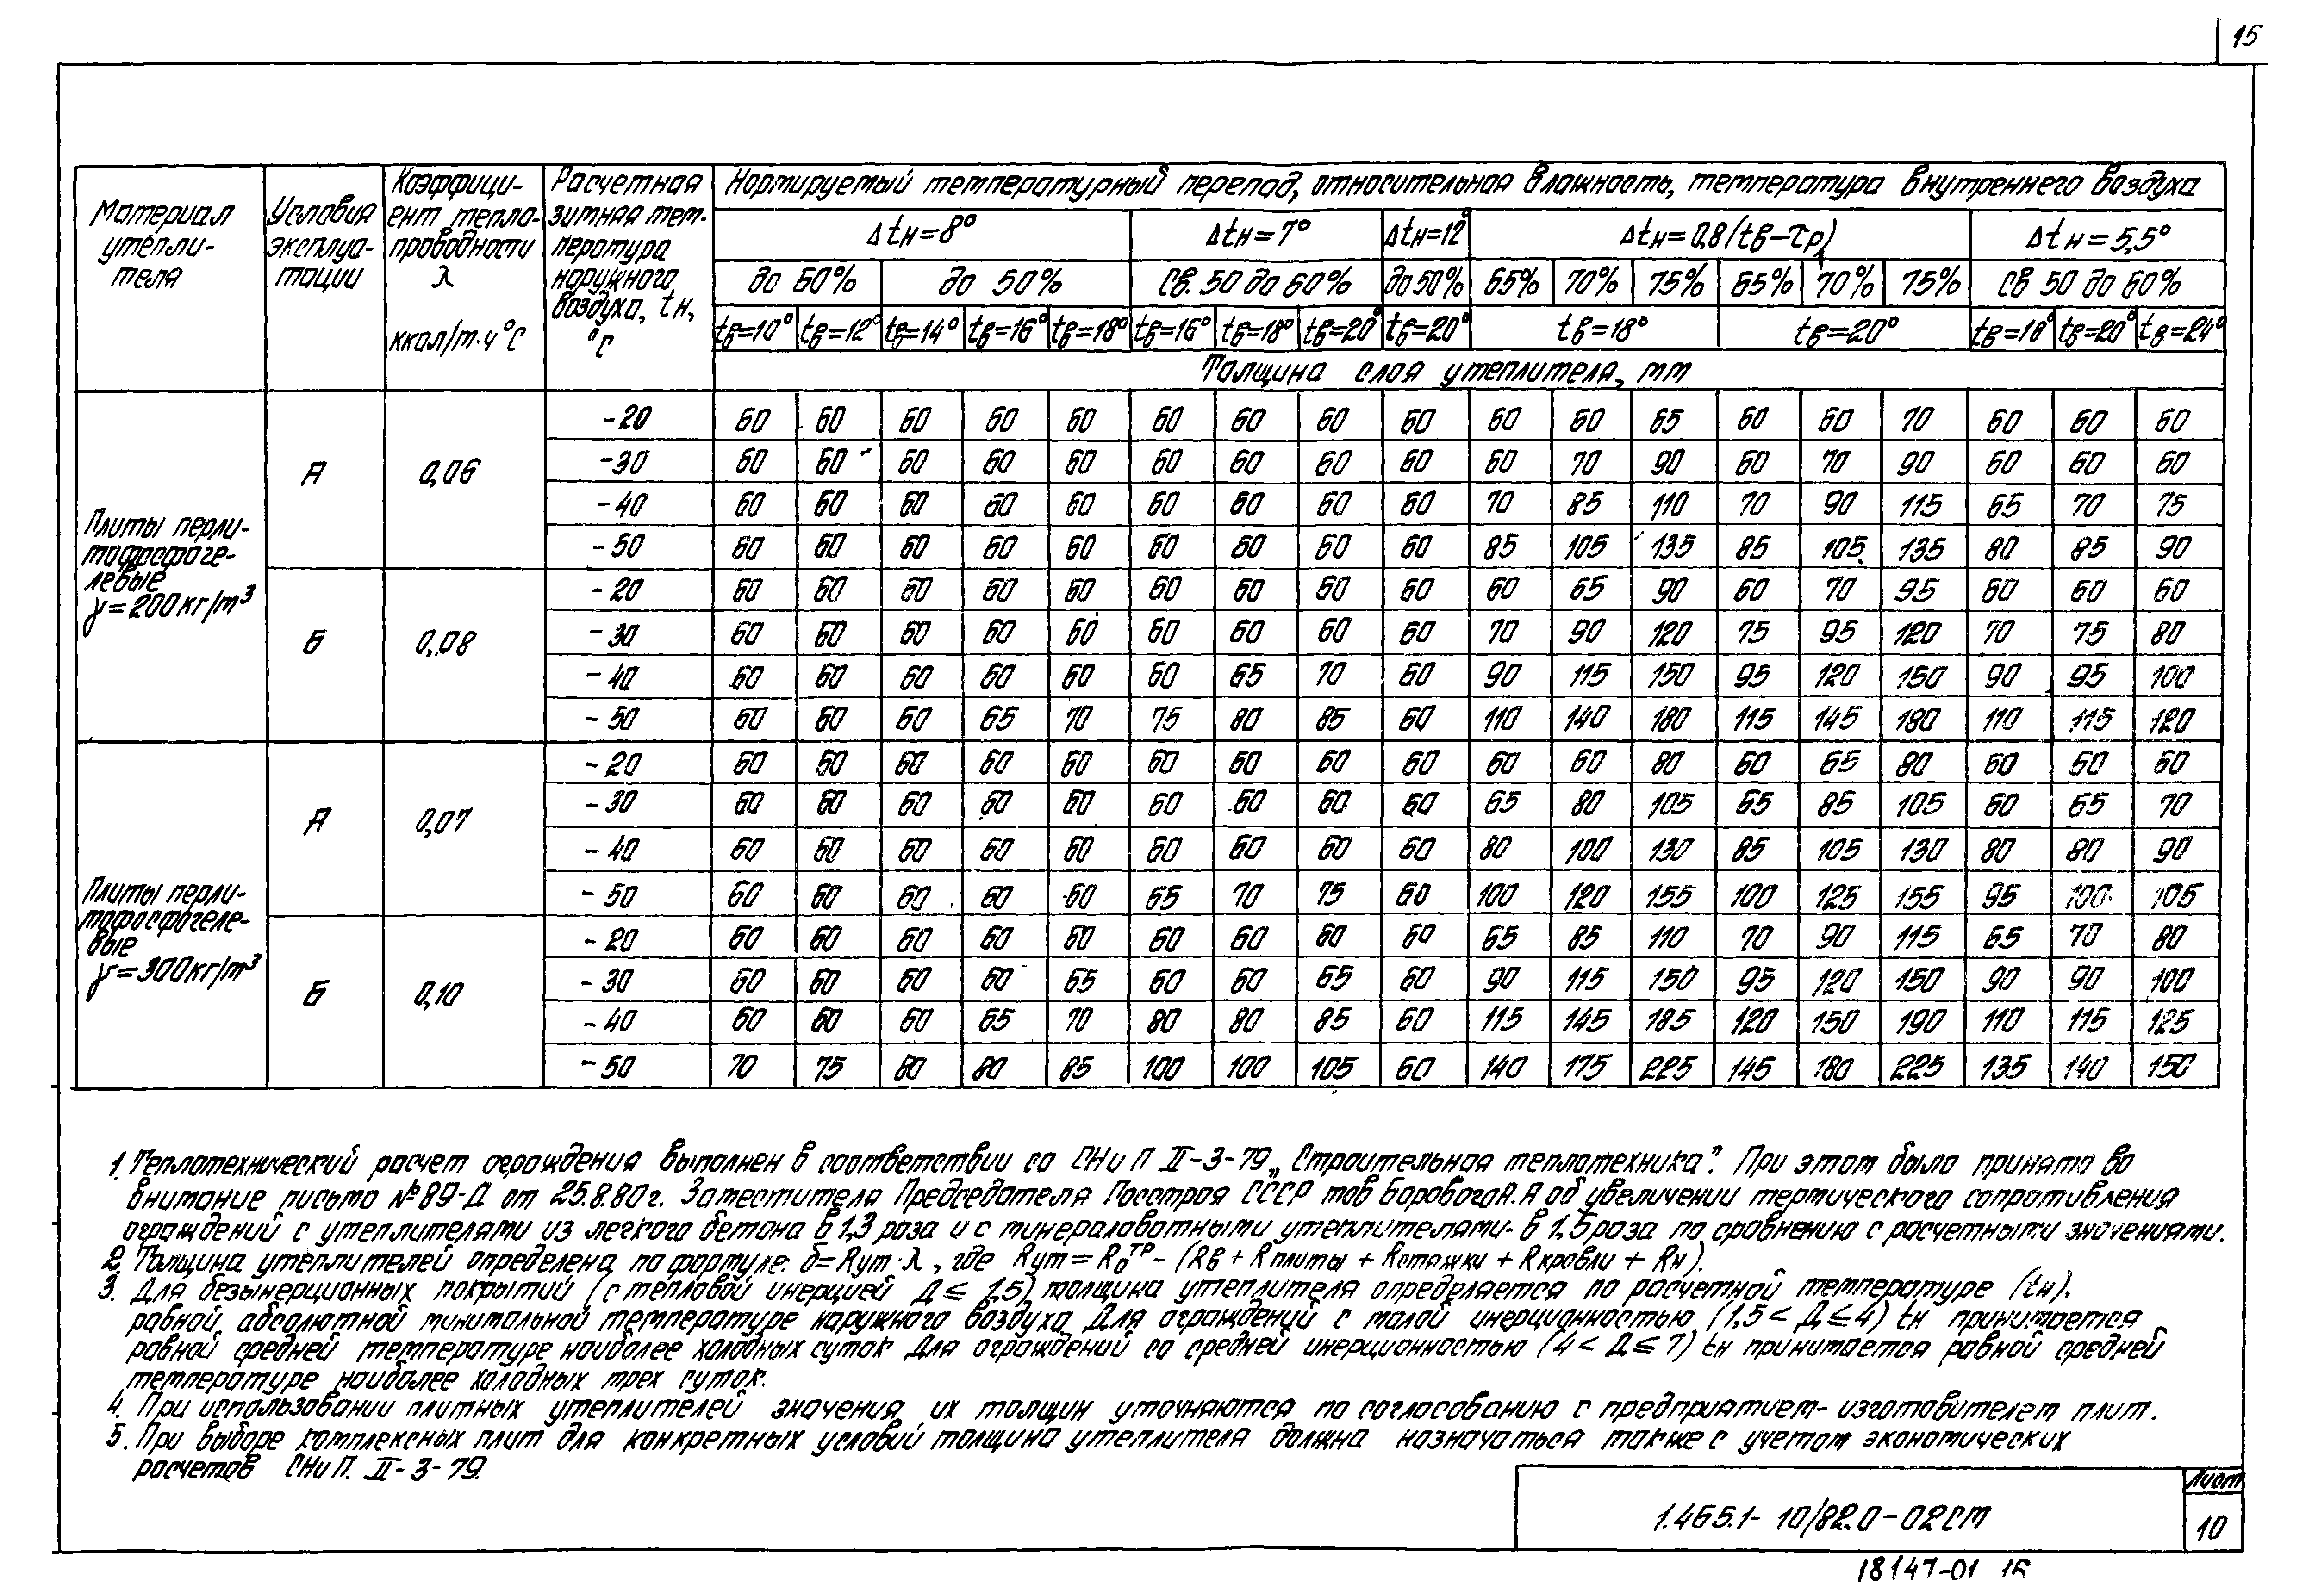 15
Материал утепли- теля | Условия эксплуа- тации | Коэффици- ент тепло- проводности λ ккал/м·ч°С | Расчетная зимняя тем- пература наружного воздуха, tн, °С | Нормируемый температурный перепад, относительная влажность, температура внутреннего воздуха
Δtн=8° | Δtн=7° | Δtн=12° | Δtн=0,8(tв-τр) | Δtн=5,5°
до 60% | до 50% | св. 50 до 60% | до 50% | 65% | 70% | 75% | 65% | 70% | 75% | св 50 до 60%
tв=10° | tв=12° | tв=14° | tв=16° | tв=18° | tв=16° | tв=18° | tв=20° | tв=20° | tв=18° | tв=20° | tв=18° | tв=20° | tв=24°
Толщина слоя утеплителя, мм
Плиты перли- тофосфоге- левые γ=200кг/м³
А 0,06
-20 60 60 60 60 60 60 60 60 60 60 60 65 60 60 70 60 60 60
-30 60 60 60 60 60 60 60 60 60 60 70 90 60 70 90 60 60 60
-40 60 60 60 60 60 60 60 60 60 70 85 110 70 90 115 65 70 75
-50 60 60 60 60 60 60 60 60 60 85 105 135 85 105 135 80 85 90
Б 0,08
-20 60 60 60 60 60 60 60 60 60 60 65 90 60 70 95 60 60 60
-30 60 60 60 60 60 60 60 60 60 70 90 120 75 95 120 70 75 80
-40 60 60 60 60 60 60 65 70 60 90 115 150 95 120 150 90 95 100
-50 60 60 60 65 70 75 80 85 60 110 140 180 115 145 180 110 115 120
Плиты перли- тофосфогеле- вые γ=300кг/м³
А 0,07
-20 60 60 60 60 60 60 60 60 60 60 60 80 60 65 80 60 60 60
-30 60 60 60 60 60 60 60 60 60 65 80 105 65 85 105 60 65 70
-40 60 60 60 60 60 60 60 60 60 80 100 130 85 105 130 80 80 90
-50 60 60 60 60 60 65 70 75 60 100 120 155 100 125 155 95 100 105
Б 0,10
-20 60 60 60 60 60 60 60 60 60 65 85 110 70 90 115 65 70 80
-30 60 60 60 60 65 60 60 65 60 90 115 150 95 120 150 90 90 100
-40 60 60 60 65 70 80 80 85 60 115 145 185 120 150 190 110 115 125
-50 70 75 80 80 85 100 100 105 60 140 175 225 145 180 225 135 140 150
1. Теплотехнический расчет ограждения выполнен в соответствии со СНиП II-3-79 „Строительная теплотехника". При этом было принято во
внимание письмо №89-Д от 25.8.80г. Заместителя Председателя Госстроя СССР тов Борового А.А об увеличении термического сопротивления
ограждений с утеплителями из легкого бетона в 1,3 раза и с минераловатными утеплителями- в 1,5 раза по сравнению с расчетными значениями.
2. Толщина утеплителей определена по формуле: δ=Rут·λ, где Rут=R₀ᵀᴾ-(Rв+Rплиты+Rстяжки+Rкровли+Rн).
3. Для безынерционных покрытий (с тепловой инерцией Д≤1,5) толщина утеплителя определяется по расчетной температуре (tн),
равной абсолютной минимальной температуре наружного воздуха. Для ограждений с малой инерционностью (1,5<Д≤4) tн принимается
равной средней температуре наиболее холодных суток. Для ограждений со средней инерционностью (4<Д≤7) tн принимается равной средней
температуре наиболее холодных трех суток.
4. При использовании плитных утеплителей значения их толщин уточняются по согласованию с предприятием-изготовителем плит.
5. При выборе комплексных плит для конкретных условий толщина утеплителя должна назначаться также с учетом экономических
расчетов СНиП. II-3-79.
1.465.1-10/82.0-02СМ
Лист
10
18147-01 16